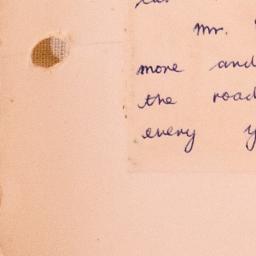 mr.
more and
the road
every y